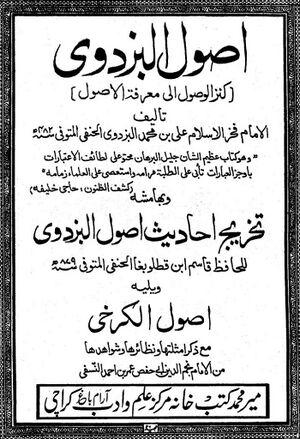 اصول البزدوی
(کنز الوصول الی معرفة الاصول)
تألیف
الامام فخر الاسلام علی بن محمد البزدوی الحنفی المتوفی سنة ۴۸۲ھ
"وهو کتاب عظیم الشان جلیل البرهان محتو علی لطائف الاعتبارات
باوجز العبارات تأبی علی الطلبة مرامه واستعصی علی العلماء زمامه"
(کشف الظنون، حاجی خلیفه)
وبهامشه
تخریج احادیث اصول البزدوی
للحافظ قاسم ابن قطلوبغا الحنفی المتوفی سنة ۸۷۹ھ
ویلیه
اصول الکرخی
مع ذکر امثلتها ونظائرها وشواهدها
من الامام نجم الدین ابی حفص عمر بن احمد النسفی
میر محمد کتب خانہ مرکز علم و ادب آرام باغ کراچی